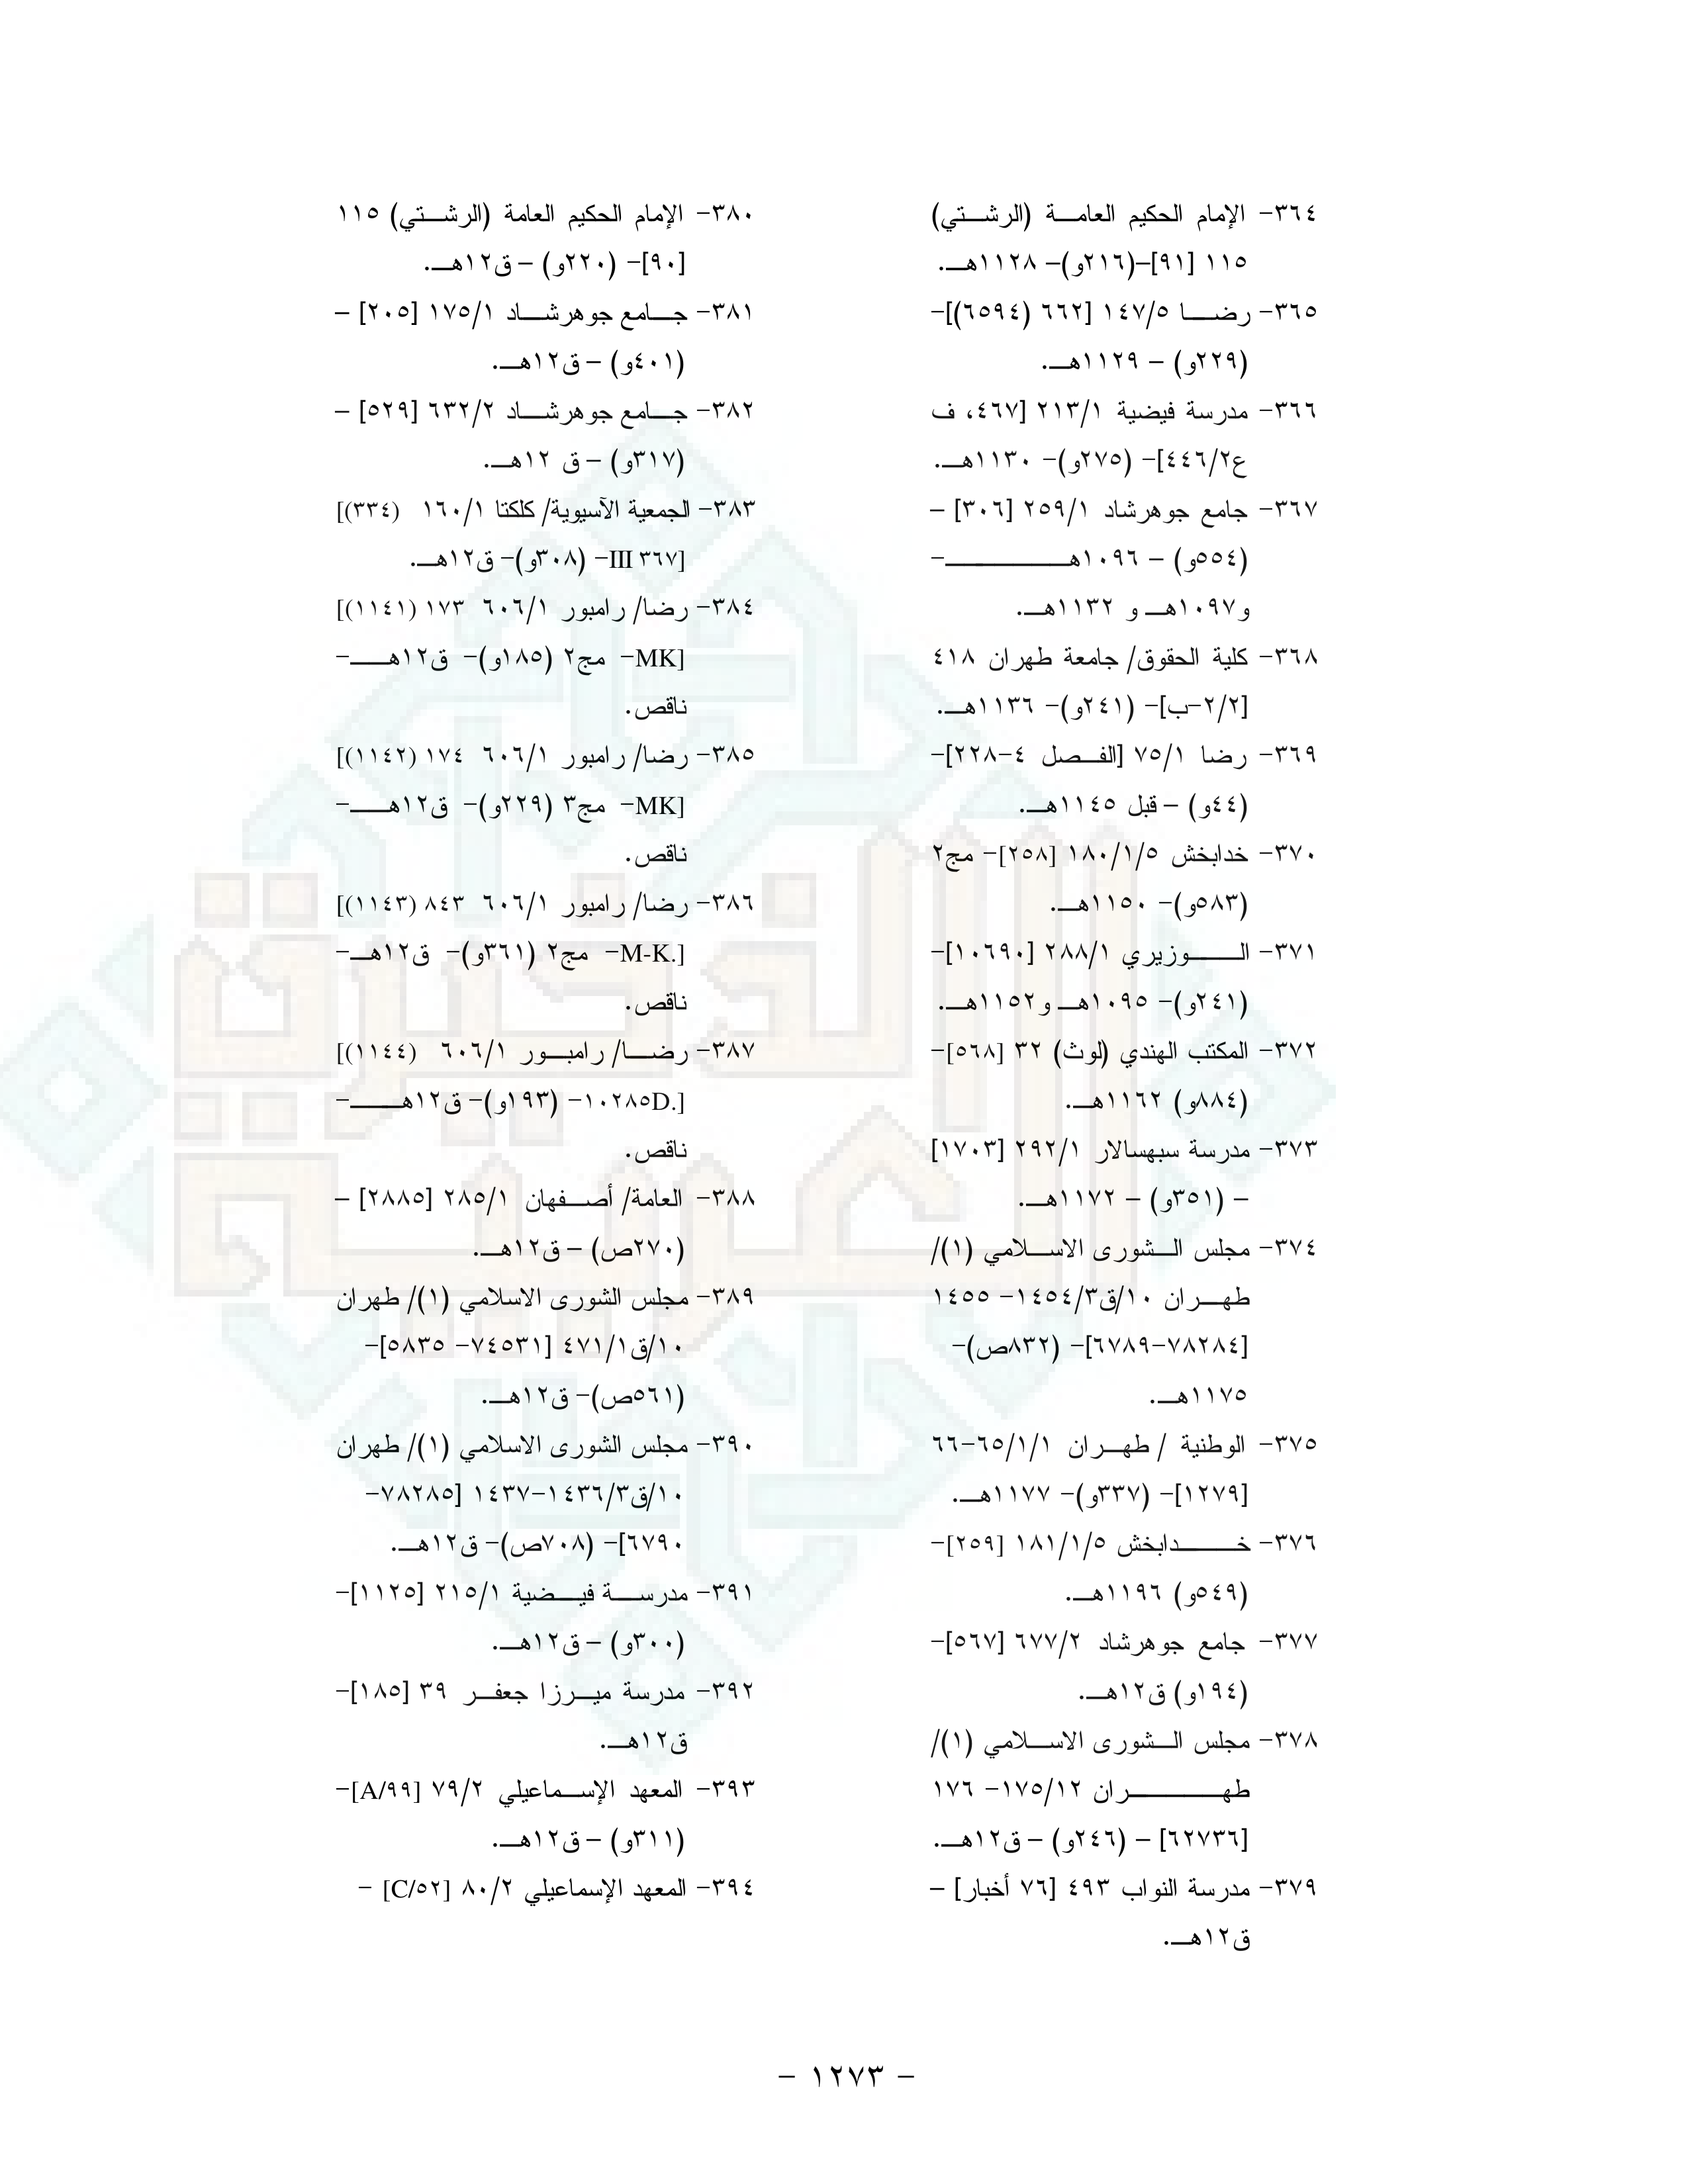 ٣٦٤- الإمام الحكيم العامة (الرشتي)
١١٥ [٩١]-(٢١٦و)- ١١٢٨هـ.
٣٦٥- رضا ١٤٧/٥ [٦٦٢ (٦٥٩٤)]-
(٢٢٩و) - ١١٢٩هـ.
٣٦٦- مدرسة فيضية ٢١٣/١ [٤٦٧، ف
ع٤٤٦/٢]- (٢٧٥و)- ١١٣٠هـ.
٣٦٧- جامع جوهرشاد ٢٥٩/١ [٣٠٦] -
(٥٥٤و) - ١٠٩٦هـ -
و١٠٩٧هـ و ١١٣٢هـ.
٣٦٨- كلية الحقوق/ جامعة طهران ٤١٨
[٢/٢-ب]- (٢٤١و)- ١١٣٦هـ.
٣٦٩- رضا ٧٥/١ [الفصل ٤-٢٢٨]-
(٤٤و) - قبل ١١٤٥هـ.
٣٧٠- خدابخش ١٨٠/١/٥ [٢٥٨]- مج٢
(٥٨٣و)- ١١٥٠هـ.
٣٧١- الوزيري ٢٨٨/١ [١٠٦٩٠]-
(٢٤١و)- ١٠٩٥هـ و١١٥٢هـ.
٣٧٢- المكتب الهندي (لوث) ٣٢ [٥٦٨]-
(٨٨٤و) ١١٦٢هـ.
٣٧٣- مدرسة سبهسالار ٢٩٢/١ [١٧٠٣]
- (٣٥١و) - ١١٧٢هـ.
٣٧٤- مجلس الشورى الاسلامي (١)/
طهران ١٠/ق١٤٥٤/٣- ١٤٥٥
[٧٨٢٨٤-٦٧٨٩]- (٨٣٢ص)-
١١٧٥هـ.
٣٧٥- الوطنية / طهران ٦٥/١/١-٦٦
[١٢٧٩]- (٣٣٧و)- ١١٧٧هـ.
٣٧٦- خدابخش ١٨١/١/٥ [٢٥٩]-
(٥٤٩و) ١١٩٦هـ.
٣٧٧- جامع جوهرشاد ٦٧٧/٢ [٥٦٧]-
(١٩٤و) ق١٢هـ.
٣٧٨- مجلس الشورى الاسلامي (١)/
طهران ١٧٥/١٢- ١٧٦
[٦٢٧٣٦] - (٢٤٦و) - ق١٢هـ.
٣٧٩- مدرسة النواب ٤٩٣ [٧٦ أخبار] -
ق١٢هـ.
٣٨٠- الإمام الحكيم العامة (الرشتي) ١١٥
[٩٠]- (٢٢٠و) - ق١٢هـ.
٣٨١- جامع جوهرشاد ١٧٥/١ [٢٠٥] -
(٤٠١و) - ق١٢هـ.
٣٨٢- جامع جوهرشاد ٦٣٢/٢ [٥٢٩] -
(٣١٧و) - ق ١٢هـ.
٣٨٣- الجمعية الآسيوية/ كلكتا ١٦٠/١ [(٣٣٤)
III ٣٦٧]- (٣٠٨و)- ق١٢هـ.
٣٨٤- رضا/ رامبور ٦٠٦/١ [(١١٤١) ١٧٣
MK]- مج٢ (١٨٥و)- ق١٢هـ-
ناقص.
٣٨٥- رضا/ رامبور ٦٠٦/١ [(١١٤٢) ١٧٤
MK]- مج٣ (٢٢٩و)- ق١٢هـ-
ناقص.
٣٨٦- رضا/ رامبور ٦٠٦/١ [(١١٤٣) ٨٤٣
M-K.]- مج٢ (٣٦١و)- ق١٢هـ-
ناقص.
٣٨٧- رضا/ رامبور ٦٠٦/١ [(١١٤٤)
١٠٢٨٥D.]- (١٩٣و)- ق١٢هـ-
ناقص.
٣٨٨- العامة/ أصفهان ٢٨٥/١ [٢٨٨٥] -
(٢٧٠ص) - ق١٢هـ.
٣٨٩- مجلس الشورى الاسلامي (١)/ طهران
١٠/ق٤٧١/١ [٧٤٥٣١- ٥٨٣٥]-
(٥٦١ص)- ق١٢هـ.
٣٩٠- مجلس الشورى الاسلامي (١)/ طهران
١٠/ق١٤٣٦/٣-١٤٣٧ [٧٨٢٨٥-
٦٧٩٠]- (٧٠٨ص)- ق١٢هـ.
٣٩١- مدرسة فيضية ٢١٥/١ [١١٢٥]-
(٣٠٠و) - ق١٢هـ.
٣٩٢- مدرسة ميرزا جعفر ٣٩ [١٨٥]-
ق١٢هـ.
٣٩٣- المعهد الإسماعيلي ٧٩/٢ [A/٩٩]-
(٣١١و) - ق١٢هـ.
٣٩٤- المعهد الإسماعيلي ٨٠/٢ [C/٥٢] -
- ١٢٧٣ -